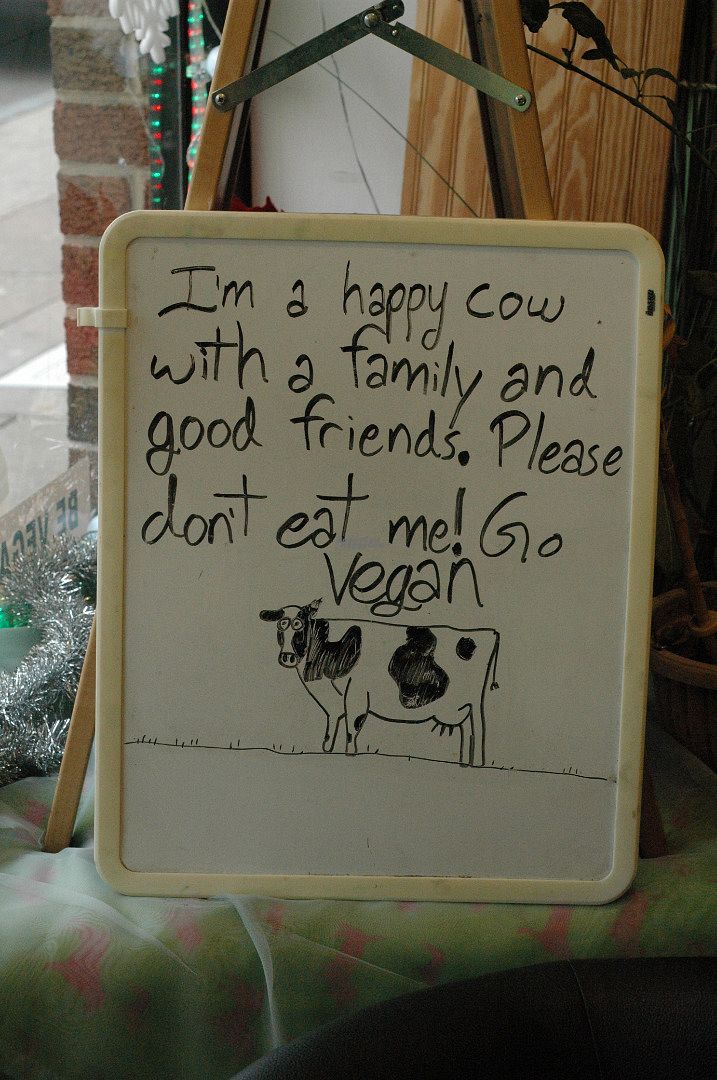 I'm a happy cow
with a family and
good friends. Please
don't eat me! Go
vegan
BE VEGA